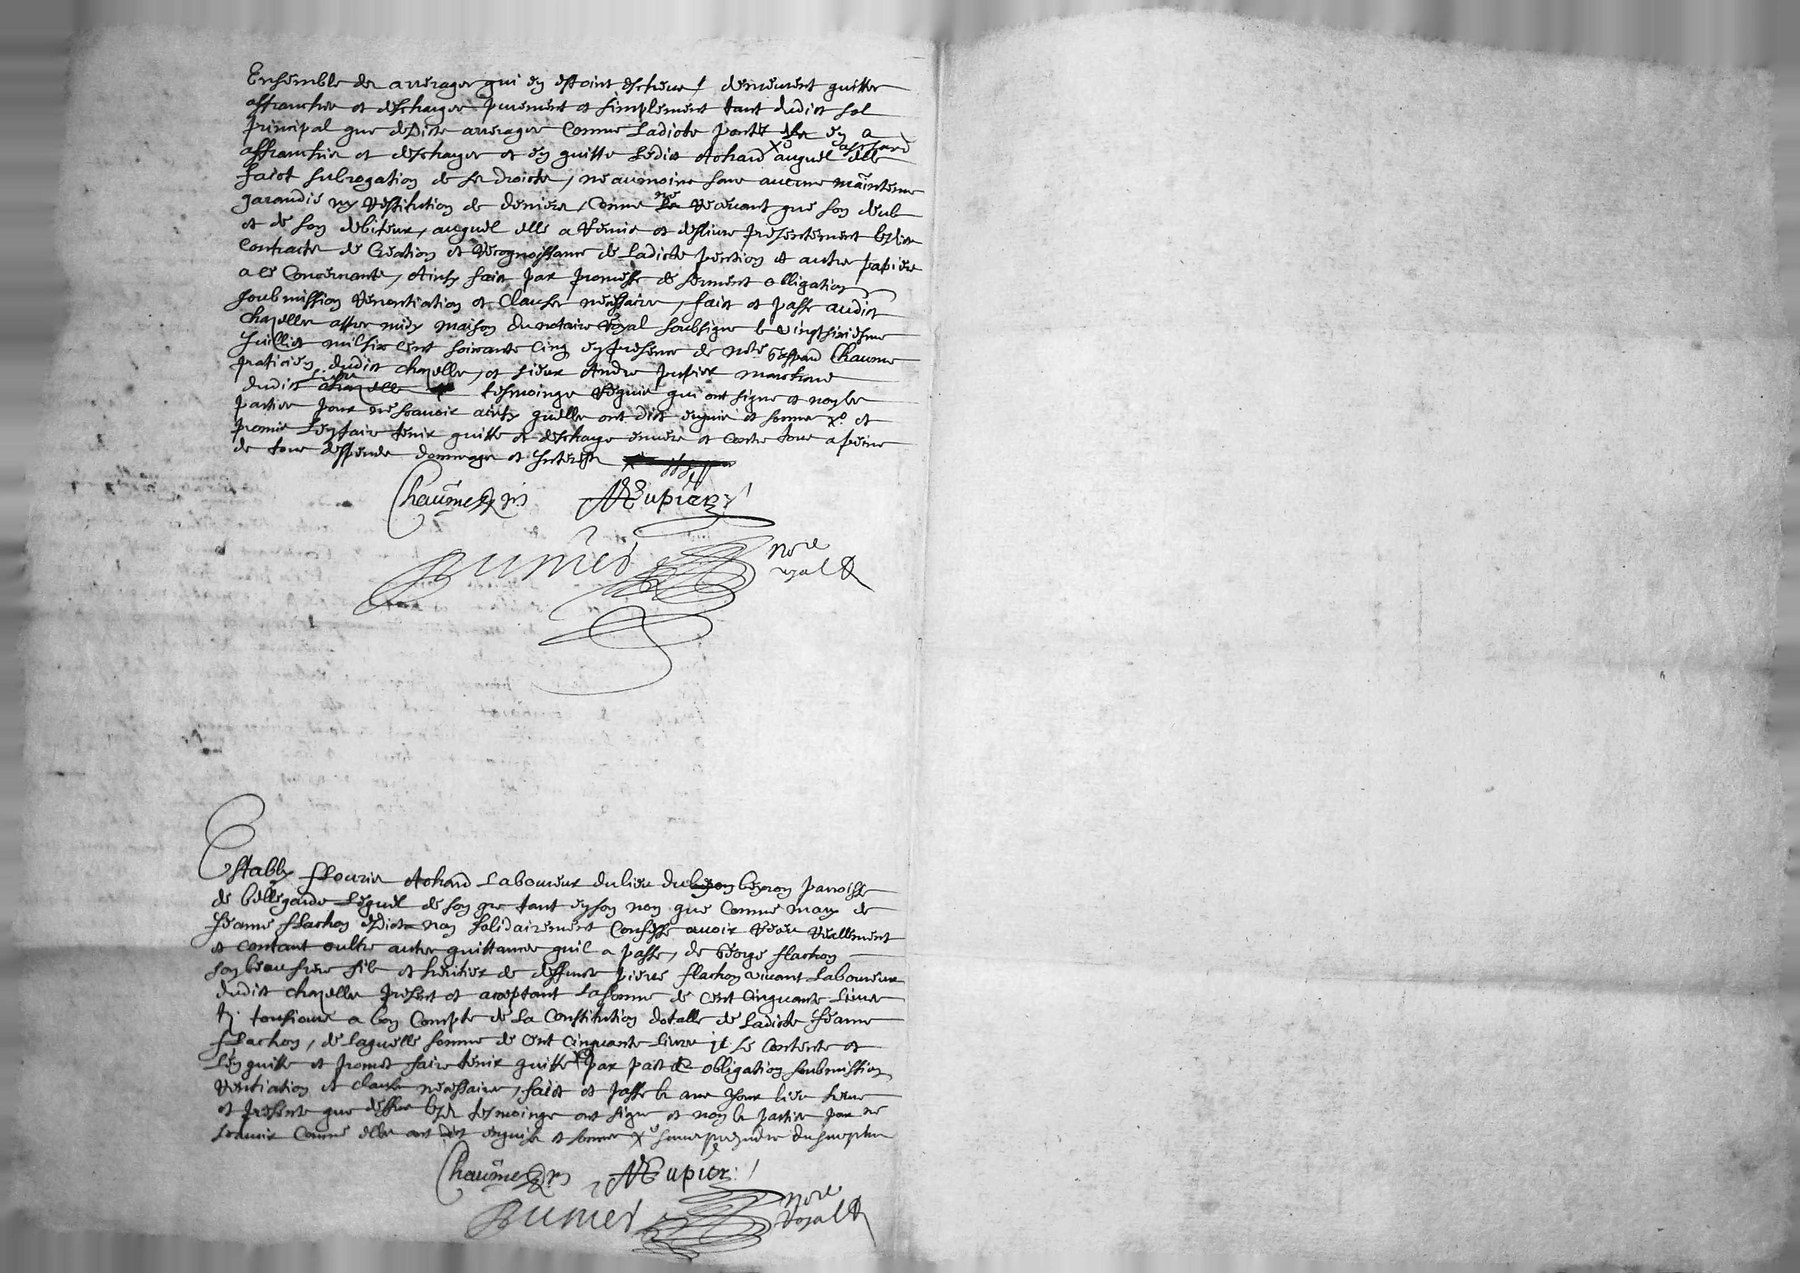 Ensemble des arrerages qui en estoint escheus / demeurent quittes
affranchis et descharges purement et simplement tant dudict sol
principal que desdicts arrerages comme ladicte partie en a
affranchis et descharges et en quitte ledict Achard auquel elle
faict subrogation de ses droicts / neaumoins sans aucune maintenue
garandie ny restitution de deniers / comme ne recevant que son deub
et de son debiteur, auquel elle a remis et deslivré presentement lesdicts
contracts de creation et recognoissance de ladicte pention et autres papiers
a ce concernants, Ainsy faict par promesse de serment obligation
soubmission renontiation et clauses necessaires, faict et passé audict
chapelle apres midy maison du notaire royal soubsigné le vingtsixiesme
juillet mil six cent soixante cinq en presence de Chaume
praticien dudict chapelle, et sieur Andre pupier marchand
dudict tesmoings requis qui ont signé et non les
parties pour ne scavoir ainsy quelles ont dict enquis et sommé et
promis l'en faire tenir quitte et descharge envers et contre tous a peine
de tous despends dommages et interests
Chaume pns Pupier
nore
royal
Establi Achard Laboureur du lieu du parroisse
de bellegarde Lequel de son gre tant en son nom que comme mary de
Jeanne flachon esdicts noms solidairement confesse avoir receu reellement
et contant oultre autres quittances quil a passé, de George flachon
son beau frere fils et heritier de deffunct pierre flachon vivant Laboureur
dudict chapelle present et acceptant La somme de cent cinquante Livres
tz. tousiours a bon compte de La constitution dotalle de Ladicte Jeanne
flachon, de laquelle somme de cent cinquante Livres il se contente et
Len quitte et promet faire tenir quitte par pact obligation soubmission
rentiation et clauses necessaires, faict et passé les an jour lieu heure
et presents que dessus lesdicts tesmoings ont signé et non les parties pour ne
scavoir comme elles ont dict enquises et sommes
Chaume pns Pupier
nore
Royal